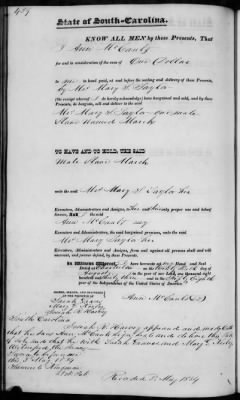 State of South-Carolina.
KNOW ALL MEN by these Presents, That
I Ann McCants
for and in consideration of the sum of One Dollar
to me in hand paid, at and before the sealing and delivery of these Presents,
by Mrs Mary S. Taylor
(the receipt whereof I do hereby acknowledge) have bargained and sold, and by these
Presents, do bargain, sell and deliver to the said
Mrs Mary S. Taylor one male
Slave Named March
TO HAVE AND TO HOLD, THE SAID
Male Slave March
unto the said Mrs Mary S. Taylor her
Executors, Administrators and Assigns, to her and their only proper use and behoof,
forever. And I the said
Ann McCants my
Executors, Administrators and Assigns, the said bargained premises, unto the said
Mrs Mary Taylor her
Executors, Administrators and Assigns, from and against all persons shall and will
warrant, and forever defend, by these Presents.
IN WITNESS WHEREOF, I have hereunto set my Hand and Seal
Dated at Charleston on the
in the year of our Lord, one thousand eight
hundred and and in the
Independence of the United States of America.
SIGNED, SEALED, AND DELIVERED
IN THE PRESENCE OF
Ann McCants
Sarah
Mary
Joseph H. Harvey
South Carolina
Joseph H. Harvey appeared and made Oath
that he saw Ann McCants
that he with Sarah and Mary
Witnessed the Same
Sworn to before me
May 1834
Recorded May 1834